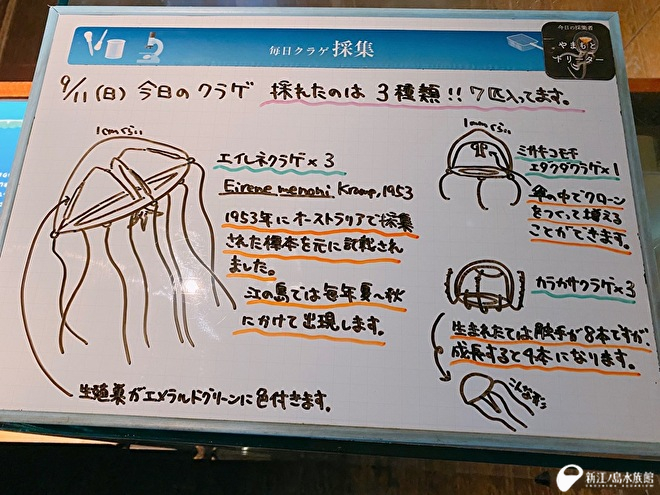 毎日クラゲ 採集
今日の採集者
やまもと
ドリーター
9/11(日) 今日のクラゲ 採れたのは 3種類!! 7匹入ってます。
1cmくらい
エイレネクラゲ×3
Eirene menoni Kramp, 1953
1953年にオーストラリアで採集
された標本を元に記載され
ました。
江の島では毎年夏〜秋
にかけて出現します。
生殖巣がエメラルドグリーンに色付きます。
1mmくらい
ミサキコモチ
エダクダクラゲ×1
傘の中でクローン
をつくって増える
ことができます。
カラカサクラゲ×3
生まれたては触手が8本ですが、
成長すると4本になります。
こんなかんじ
新江ノ島水族館
ENOSHIMA AQUARIUM